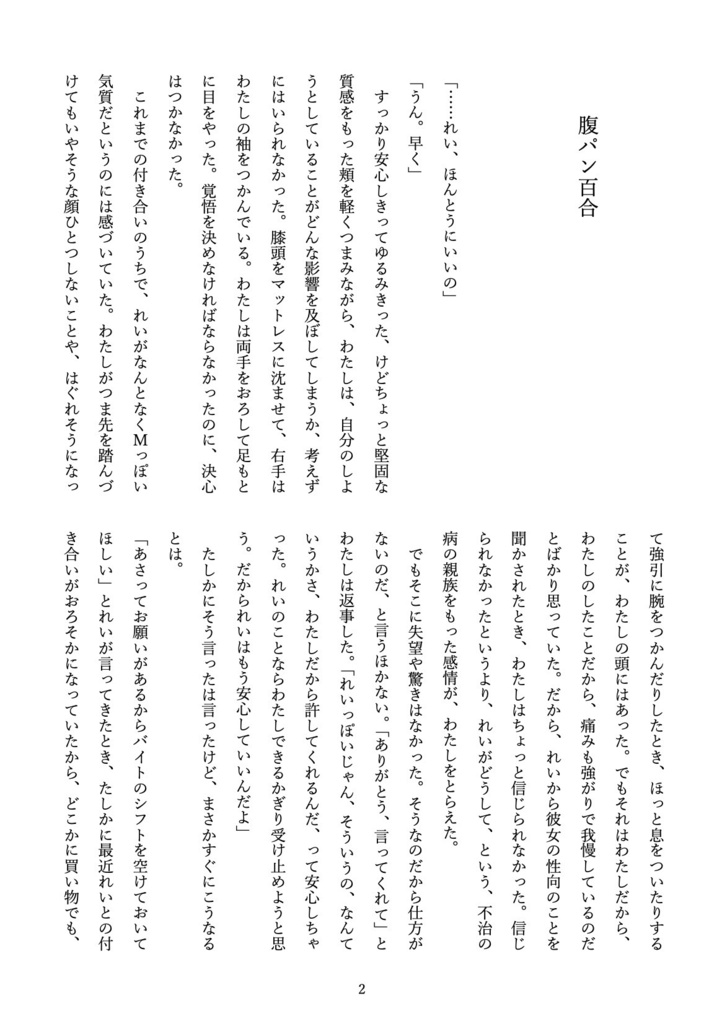 腹パン百合
「……れい、ほんとうにいいの」
「うん。早く」
　すっかり安心しきってゆるみきった、けどちょっと堅固な
質感をもった頬を軽くつまみながら、わたしは、自分のしよ
うとしていることがどんな影響を及ぼしてしまうか、考えず
にはいられなかった。膝頭をマットレスに沈ませて、右手は
わたしの袖をつかんでいる。わたしは両手をおろして足もと
に目をやった。覚悟を決めなければならなかったのに、決心
はつかなかった。
　これまでの付き合いのうちで、れいがなんとなくＭっぽい
気質だというのには感づいていた。わたしがつま先を踏んづ
けてもいやそうな顔ひとつしないことや、はぐれそうになっ
て強引に腕をつかんだりしたとき、ほっと息をついたりする
ことが、わたしの頭にはあった。でもそれはわたしだから、
わたしのしたことだから、痛みも強がりで我慢しているのだ
とばかり思っていた。だから、れいから彼女の性向のことを
聞かされたとき、わたしはちょっと信じられなかった。信じ
られなかったというより、れいがどうして、という、不治の
病の親族をもった感情が、わたしをとらえた。
　でもそこに失望や驚きはなかった。そうなのだから仕方が
ないのだ、と言うほかない。「ありがとう、言ってくれて」と
わたしは返事した。「れいっぽいじゃん、そういうの、なんて
いうかさ、わたしだから許してくれるんだ、って安心しちゃ
った。れいのことならわたしできるかぎり受け止めようと思
う。だかられいはもう安心していいんだよ」
　たしかにそう言ったは言ったけど、まさかすぐにこうなる
とは。
「あさってお願いがあるからバイトのシフトを空けておいて
ほしい」とれいが言ってきたとき、たしかに最近れいとの付
き合いがおろそかになっていたから、どこかに買い物でも、
2